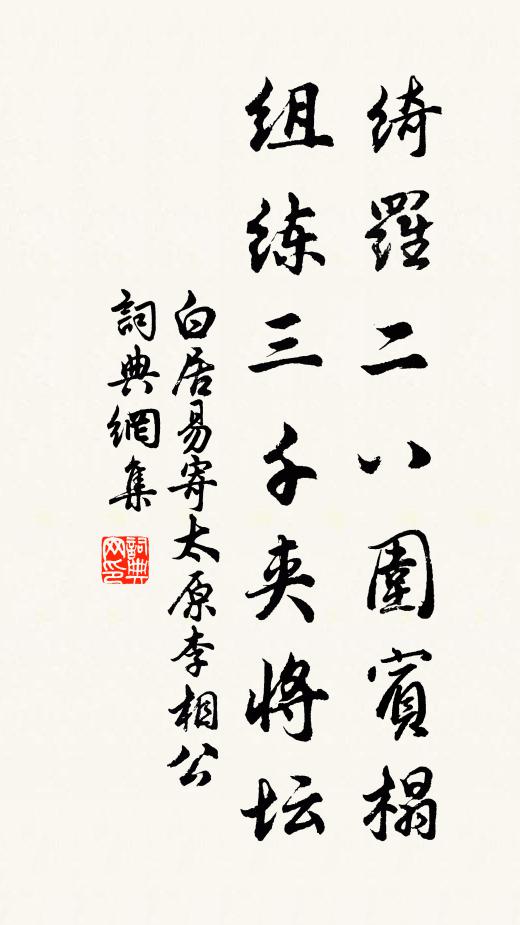 绮羅二八圍賓榻
组练三千夹將坛
白居易寄太原李相公
詞典網集
詞典
网印